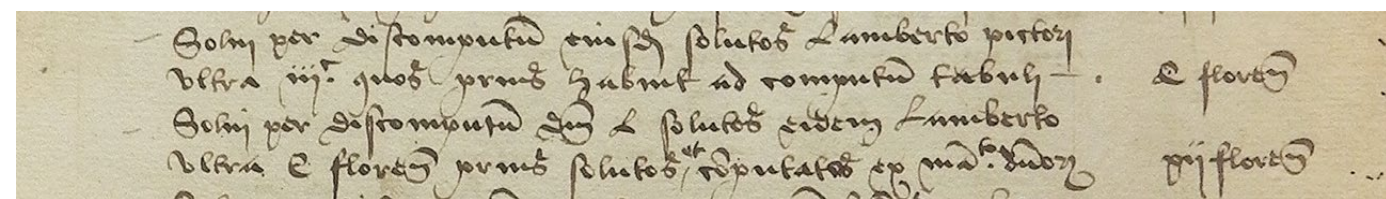 Solui per discomputū eiusdē solutos Lamberto pictori
vltra iijᶜ quos prius habuit ad computū tabuli C florenͫ
Solui per discomputū dn̄i L solutos eidem Lamberto
vltra C florenͫ prius solutos et cōputatos ex mātᵒ dn̄orum xij florenͫ